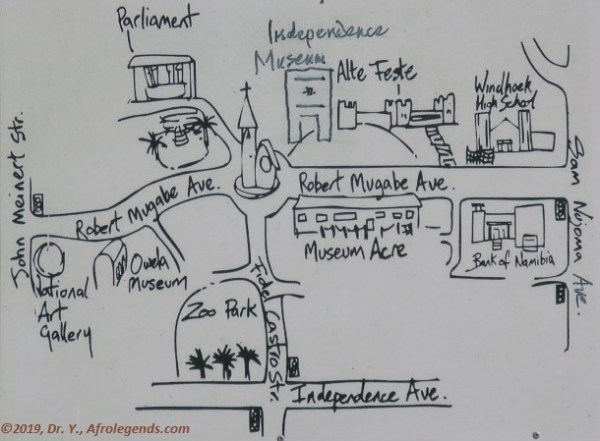 Parliament
Independence
Museum
Alte Feste
Windhoek
High School
John Meinert Str.
Robert Mugabe Ave.
Robert Mugabe Ave.
Sam Nujoma Ave.
Museum Acre
Bank of Namibia
National
Art
Gallery
Owela
Museum
Zoo Park
Fidel Castro Str.
Independence Ave.
©2019, Dr. Y., Afrolegends.com